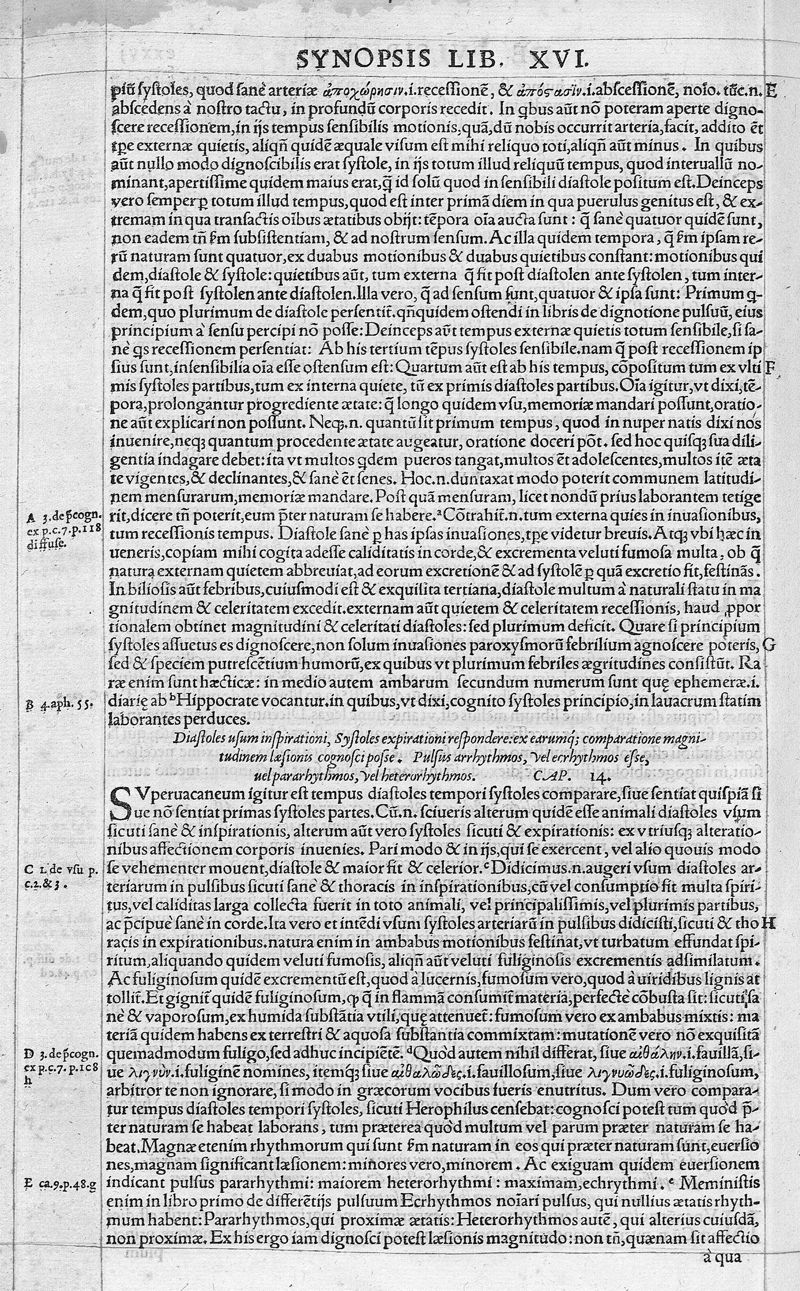 SYNOPSIS LIB. XVI.
piũ ſyſtoles, quod ſanè arteriæ ἀποχώρησιν.i.receſſionẽ, & ἀπόςασιν.i.abſceſſionẽ, noĩo. tũc.n. E
abſcedens à noſtro tactu, in profundũ corporis recedit. In ꝗbus aũt nõ poteram aperte digno-
ſcere receſſionem, in ijs tempus ſenſibilis motionis, quã, dũ nobis occurrit arteria, facit, addito ẽt
tp̃e externæ quietis, aliqñ quidẽ æquale viſum eſt mihi reliquo toti, aliqñ aũt minus. In quibus
aũt nullo modo dignoſcibilis erat ſyſtole, in ijs totum illud reliquũ tempus, quod interuallũ no-
minant, apertiſſime quidem maius erat, q̃ id ſolũ quod in ſenſibili diaſtole poſitum eſt. Deinceps
vero ſemper ꝑ totum illud tempus, quod eſt inter primã diem in qua puerulus genitus eſt, & ex-
tremam in qua tranſactis oĩbus ætatibus obijt: tẽpora oĩa aucta ſunt: q̃ ſanè quatuor quidẽ ſunt,
non eadem tñ ſm̃ ſubſiſtentiam, & ad noſtrum ſenſum. Ac illa quidem tempora, q̃ ſm̃ ipſam re-
rũ naturam ſunt quatuor, ex duabus motionibus & duabus quietibus conſtant: motionibus qui
dem, diaſtole & ſyſtole: quietibus aũt, tum externa q̃ fit poſt diaſtolen ante ſyſtolen, tum inter-
na q̃ fit poſt ſyſtolen ante diaſtolen. Illa vero, q̃ ad ſenſum ſunt, quatuor & ipſa ſunt: Primum ꝗ-
dem, quo plurimum de diaſtole perſentit̃. qñquidem oſtendi in libris de dignotione pulſuũ, eius
principium à ſenſu percipi nõ poſſe: Deinceps aũt tempus externæ quietis totum ſenſibile, ſi ſa-
nè ꝗs receſſionem perſentiat: Ab his tertium tẽpus ſyſtoles ſenſibile. nam q̃ poſt receſſionem ip
ſius ſunt, inſenſibilia oĩa eſſe oſtenſum eſt: Quartum aũt eſt ab his tempus, cõpoſitum tum ex vlti F
mis ſyſtoles partibus, tum ex interna quiete, tũ ex primis diaſtoles partibus. Oĩa igitur, vt dixi, tẽ-
pora, prolongantur progrediente ætate: q̃ longo quidem vſu, memoriæ mandari poſſunt, oratio-
ne aũt explicari non poſſunt. Neqꝫ.n. quantũ ſit primum tempus, quod in nuper natis dixi nos
inuenire, neqꝫ quantum procedente ætate augeatur, oratione doceri põt. ſed hoc quiſqꝫ ſua dili-
gentia indagare debet: ita vt multos ꝗdem pueros tangat, multos ẽt adoleſcentes, multos itẽ æta
te vigentes, & declinantes, & ſanè ẽt ſenes. Hoc.n. duntaxat modo poterit communem latitudi-
nem menſurarum, memoriæ mandare. Poſt quã menſuram, licet nondũ prius laborantem tetige
rit, dicere tñ poterit, eum p̃ter naturam ſe habere. ᵃCõtrahit̃.n. tum externa quies in inuaſionibus,
tum receſſionis tempus. Diaſtole ſanè ꝑ has ipſas inuaſiones, tp̃e videtur breuis. Atqꝫ vbi hæc in
ueneris, copiam mihi cogita adeſſe caliditatis in corde, & excrementa veluti fumoſa multa, ob q̃
natura externam quietem abbreuiat, ad eorum excretionẽ & ad ſyſtolẽ ꝑ quã excretio fit, feſtinãs.
In bilioſis aũt febribus, cuiuſmodi eſt & exquiſita tertiana, diaſtole multum à naturali ſtatu in ma
gnitudinem & celeritatem excedit. externam aũt quietem & celeritatem receſſionis, haud ꝓpor
tionalem obtinet magnitudini & celeritati diaſtoles: ſed plurimum deficit. Quare ſi principium
ſyſtoles aſſuetus es dignoſcere, non ſolum inuaſiones paroxyſmorũ febrilium agnoſcere poteris, G
ſed & ſpeciem putreſcẽtium humorũ, ex quibus vt plurimum febriles ægritudines conſiſtũt. Ra
ræ enim ſunt hæcticæ: in medio autem ambarum ſecundum numerum ſunt quę ephemeræ.i.
diarię ab ᵇHippocrate vocantur. in quibus, vt dixi, cognito ſyſtoles principio, in lauacrum ſtatim
laborantes perduces.
A 3. de p̃cogn.
ex p.c.7.p.118
diffuſe.
B 4.aph. 55.
Diaſtoles uſum inſpirationi, Syſtoles expirationi reſpondere: ex earumqꝫ comparatione magni-
tudinem læſionis cognoſci poſſe. Pulſus arrhythmos, vel ecrhythmos eſſe,
uel pararhythmos, vel heterorhythmos. CAP. 14.
SVperuacaneum igitur eſt tempus diaſtoles tempori ſyſtoles comparare, ſiue ſentiat quiſpiã ſi
ue nõ ſentiat primas ſyſtoles partes. Cũ.n. ſciueris alterum quidẽ eſſe animali diaſtoles vſum
ſicuti ſanè & inſpirationis, alterum aũt vero ſyſtoles ſicuti & expirationis: ex vtriuſqꝫ alteratio-
nibus affectionem corporis inuenies. Pari modo & in ijs, qui ſe exercent, vel alio quouis modo
ſe vehementer mouent, diaſtole & maior fit & celerior. ᶜDidicimus.n. augeri vſum diaſtoles ar-
teriarum in pulſibus ſicuti ſanè & thoracis in inſpirationibus, cũ vel conſumptio fit multa ſpiri-
tus, vel caliditas larga collecta fuerit in toto animali, vel principaliſſimis, vel plurimis partibus,
ac p̃cipuè ſanè in corde. Ita vero et intẽdi vſum ſyſtoles arteriarũ in pulſibus didiciſti, ſicuti & tho H
racis in expirationibus. natura enim in ambabus motionibus feſtinat, vt turbatum effundat ſpi-
ritum, aliquando quidem veluti fumoſis, aliqñ aũt veluti fuliginoſis excrementis adſimilatum.
Ac fuliginoſum quidẽ excrementũ eſt, quod à lucernis, fumoſum vero, quod à uiridibus lignis at
tollit̃. Et gignit̃ quidẽ fuliginoſum, qꝫ q̃ in flammã conſumit̃ materia, perfecte cõbuſta ſit: ſicuti ſa
nè & vaporoſum, ex humida ſubſtãtia vtili, quę attenuet̃: fumoſum vero ex ambabus mixtis: ma
teriã quidem habens ex terreſtri & aquoſa ſubſtantia commixtam: mutationẽ vero nõ exquiſitã
quemadmodum fuligo, ſed adhuc incipiẽtẽ. ᵈQuòd autem nihil differat, ſiue αἰθάλην.i.fauillã, ſi-
ue λιγνὺν.i.fuliginẽ nomines, itemqꝫ ſiue αἰθαλῶδες.i.fauilloſum, ſiue λιγνυῶδες.i.fuliginoſum,
arbitror te non ignorare, ſi modo in græcorum vocibus fueris enutritus. Dum vero compara-
tur tempus diaſtoles tempori ſyſtoles, ſicuti Herophilus cenſebat: cognoſci poteſt tum quòd p̃-
ter naturam ſe habeat laborans, tum præterea quòd multum vel parum præter naturam ſe ha-
beat. Magnæ etenim rhythmorum qui ſunt ſm̃ naturam in eos qui præter naturam ſunt, euerſio
nes, magnam ſignificant læſionem: minores vero, minorem. Ac exiguam quidem euerſionem
indicant pulſus pararhythmi: maiorem heterorhythmi: maximam, echrythmi. ᵉ Meminiſtis
enim in libro primo de differẽtijs pulſuum Ecrhythmos noĩari pulſus, qui nullius ætatis rhyth-
mum habent: Pararhythmos, qui proximæ ætatis: Heterorhythmos autẽ, qui alterius cuiuſdã,
non proximæ. Ex his ergo iam dignoſci poteſt læſionis magnitudo: non tñ, quænam ſit affectio
à qua
C 1. de vſu p.
c.2.& 3.
D 3. de p̃cogn.
ex p.c.7.p.1c8
h
E ca.9.p.48.g